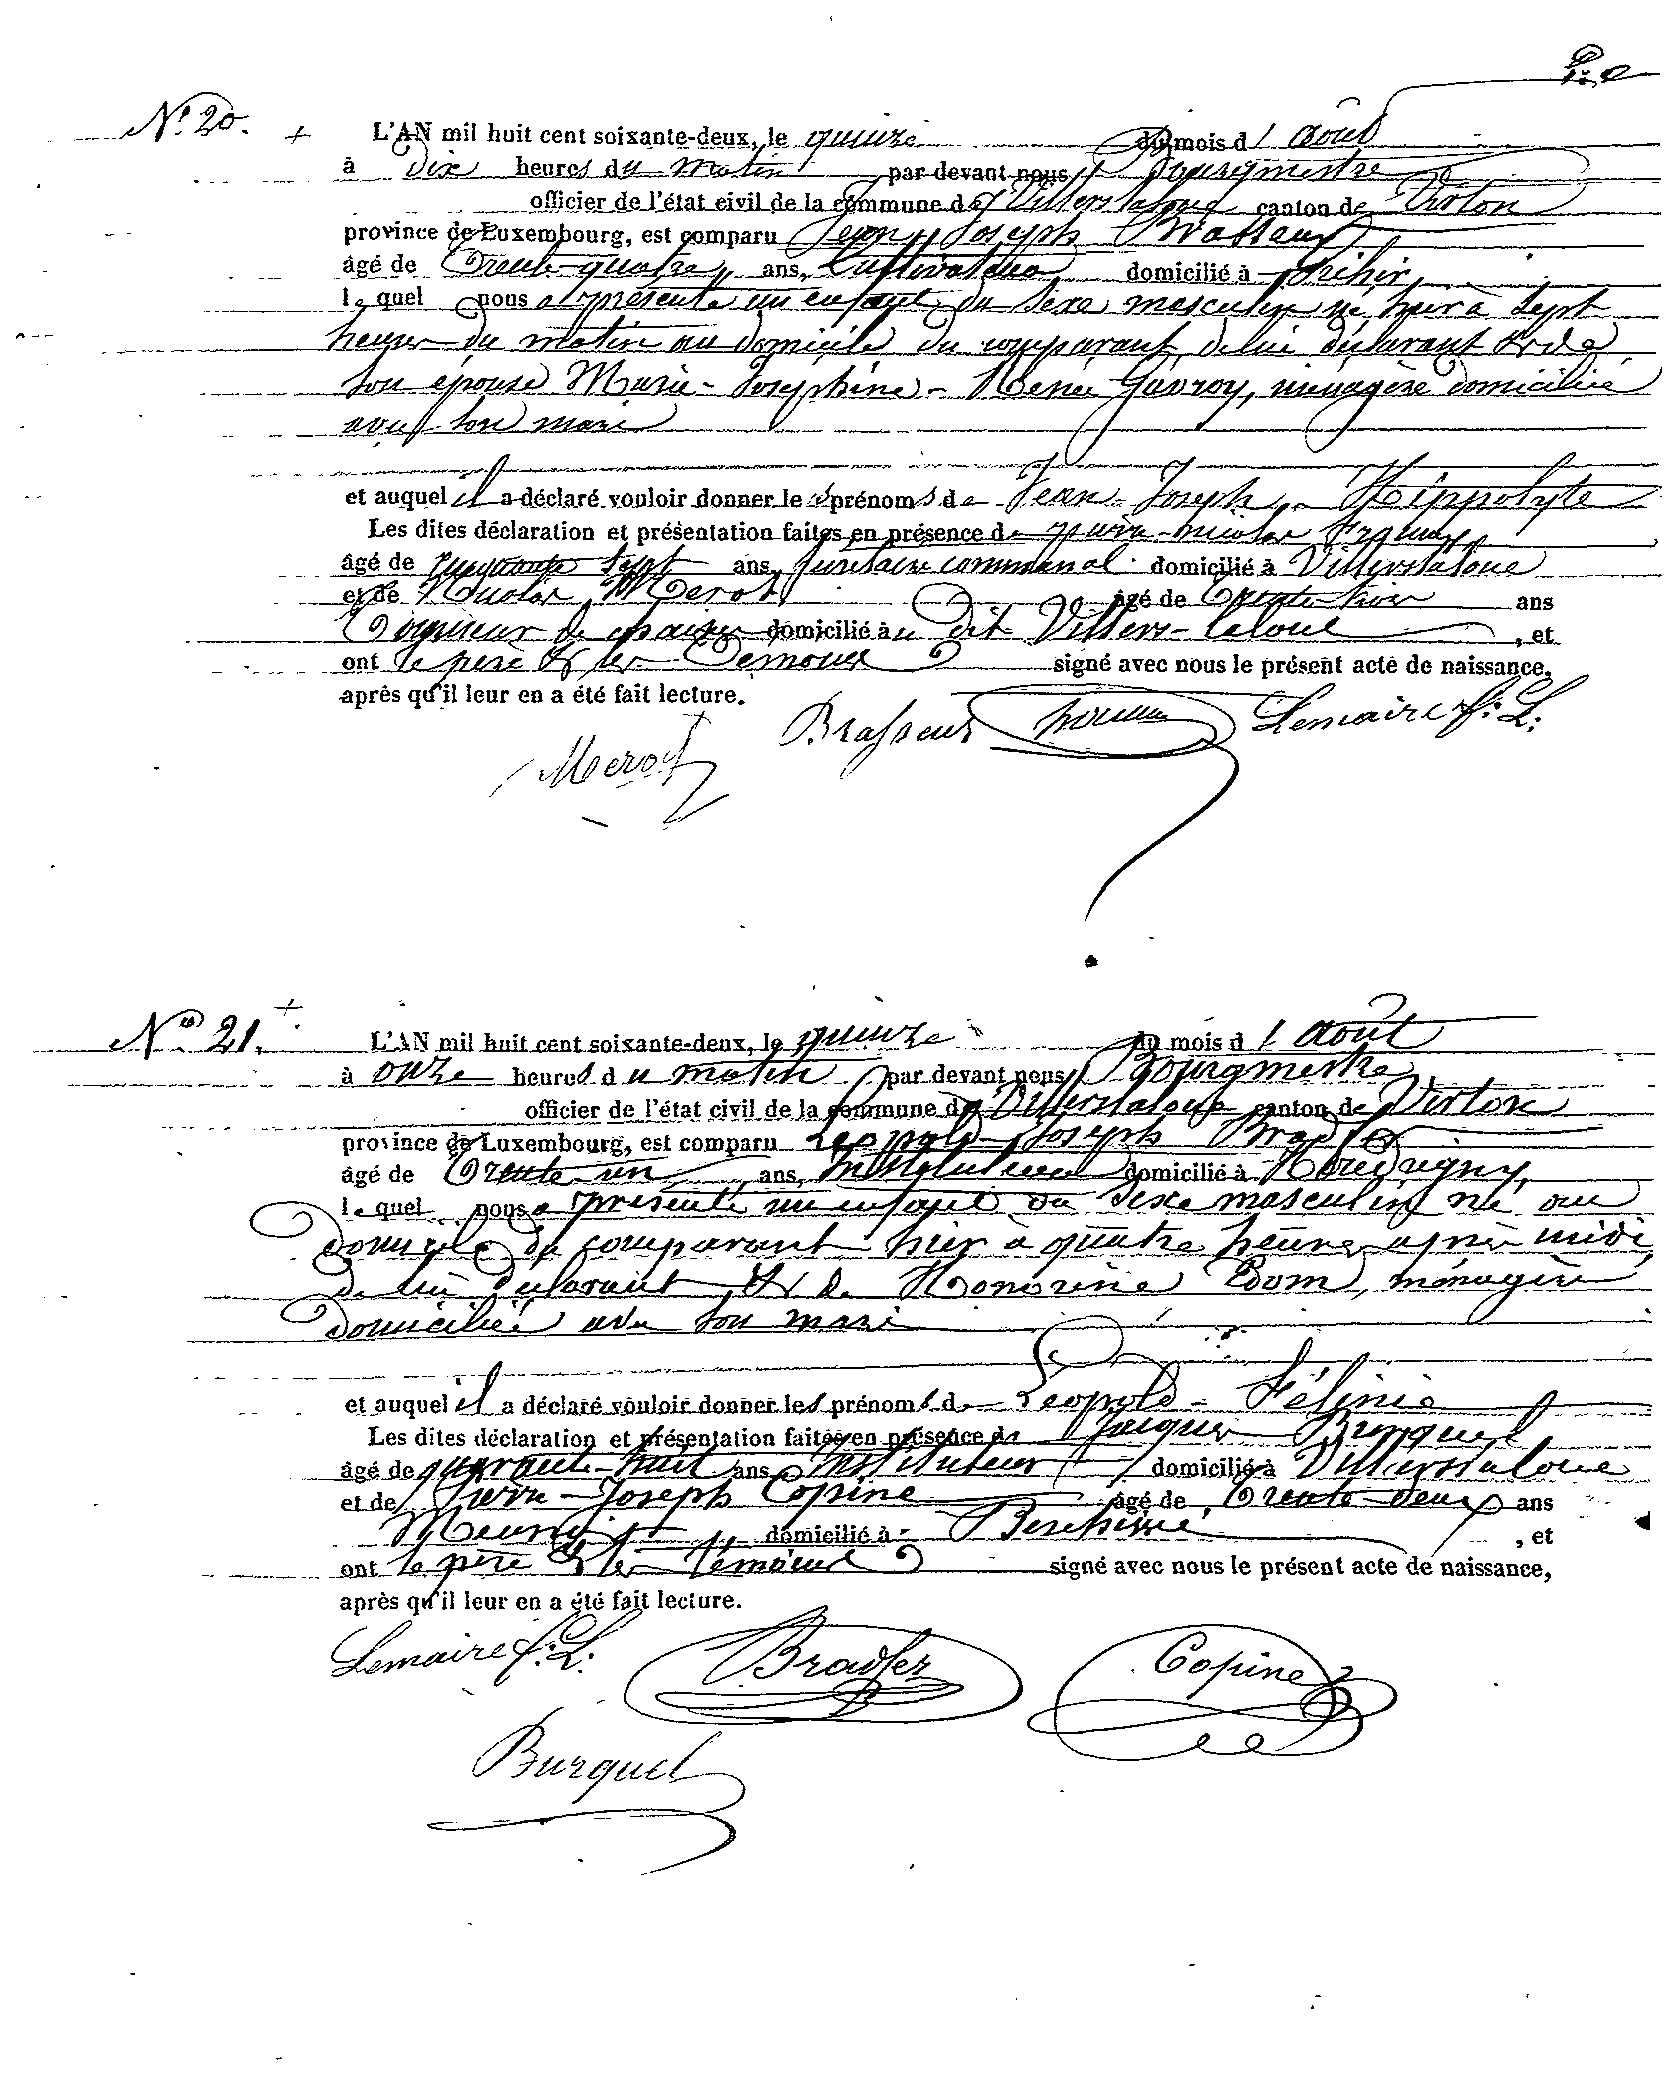 N.° 20.
L'AN mil huit cent soixante-deux, le quinze du mois d'août
à dix heures du matin par devant nous Bourgmestre
officier de l'état civil de la commune de Villerslaloue canton de Virton
province de Luxembourg, est comparu Jean Joseph Brasseur
âgé de Trente-quatre ans, Cultivateur domicilié à
lequel nous a présenté un enfant du sexe masculin né hier à sept
heures du matin au domicile du comparant, de lui déclarant & de
son épouse Marie-Joséphine-Renée Gavroy, ménagère domiciliée
avec son mari
et auquel il a déclaré vouloir donner les prénoms de Jean-Joseph-Hippolyte
Les dites déclaration et présentation faites en présence de pierre-nicolas
âgé de sept ans, secrétaire communal domicilié à Villerslaloue
et de Nicolas Merot âgé de Trente trois ans
domicilié à u dit Villers-laloue, et
ont le père & les Témoins signé avec nous le présent acte de naissance,
après qu'il leur en a été fait lecture.
Brasseur Lemaire f: L:
Merot
N.° 21.
L'AN mil huit cent soixante-deux, le quinze du mois d'août
à onze heures du matin par devant nous Bourgmestre
officier de l'état civil de la commune de Villerslaloue canton de Virton
province de Luxembourg, est comparu Léopold-Joseph Bradfer
âgé de Trente-un ans, Instituteur domicilié à Houdrigny,
lequel nous a présenté un enfant du sexe masculin né au
domicile du comparant hier à quatre heures après midi,
de lui déclarant & de Honorine Edom, ménagère
domiciliée avec son mari
et auquel il a déclaré vouloir donner les prénoms de Léopold-Félinie
Les dites déclaration et présentation faites en présence de Jacques Burquel
âgé de quarante-huit ans Instituteur domicilié à Villerslaloue
et de Pierre-Joseph Copine âgé de Trente-deux ans
Meunier domicilié à Berchiwé, et
ont le père & les témoins signé avec nous le présent acte de naissance,
après qu'il leur en a été fait lecture.
Lemaire f: L: Bradfer Copine
Burquel